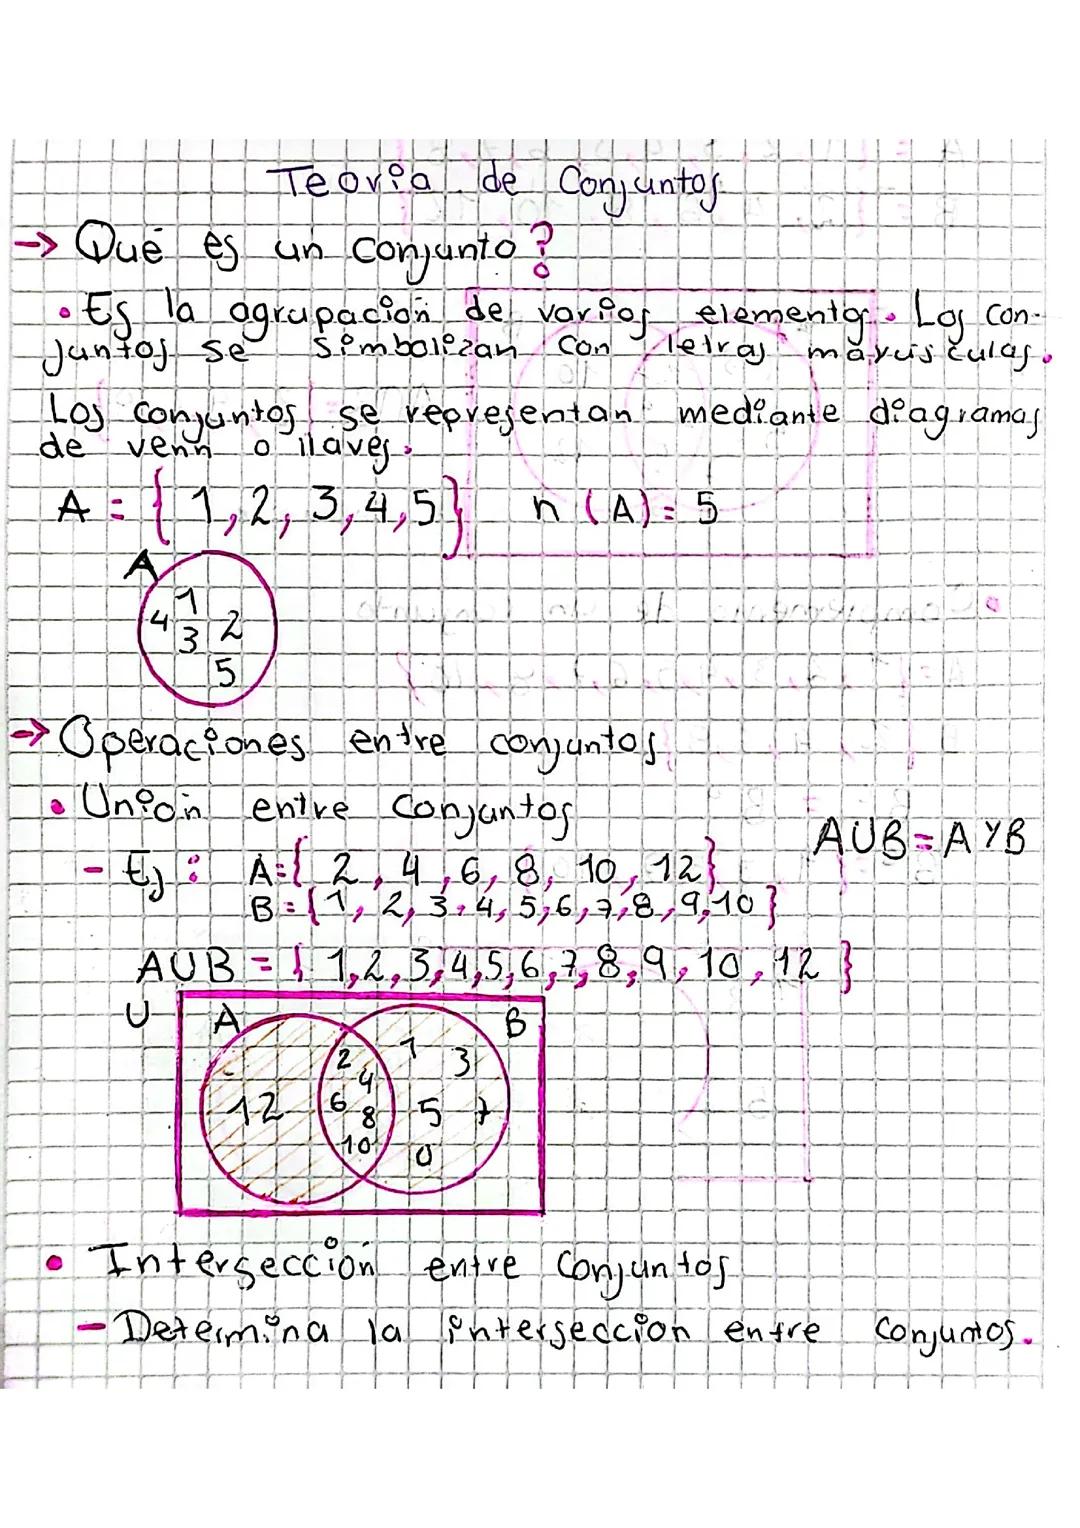 Teoria de Conjuntos
→ Qué es un conjunto?
• Es la agrupación de varios elementos. Los con-
juntos se simbolizan con letras mayusculas.
Los conjuntos se representan mediante diagramas
de venn o llaves.
A = { 1, 2, 3, 4, 5} n (A) = 5
A
1
4 3 2
5
→ Operaciones entre conjuntos
• Unión entre Conjuntos
AUB = A y B
- Ej : A={ 2, 4, 6, 8, 10, 12}
B = {1, 2, 3, 4, 5, 6, 7, 8, 9, 10}
AUB = { 1, 2, 3, 4, 5, 6, 7, 8, 9, 10, 12 }
U A B
2 1 3
4
12 6 8 5 7
10 0
• Intersección entre Conjuntos
- Determina la intersección entre Conjuntos.